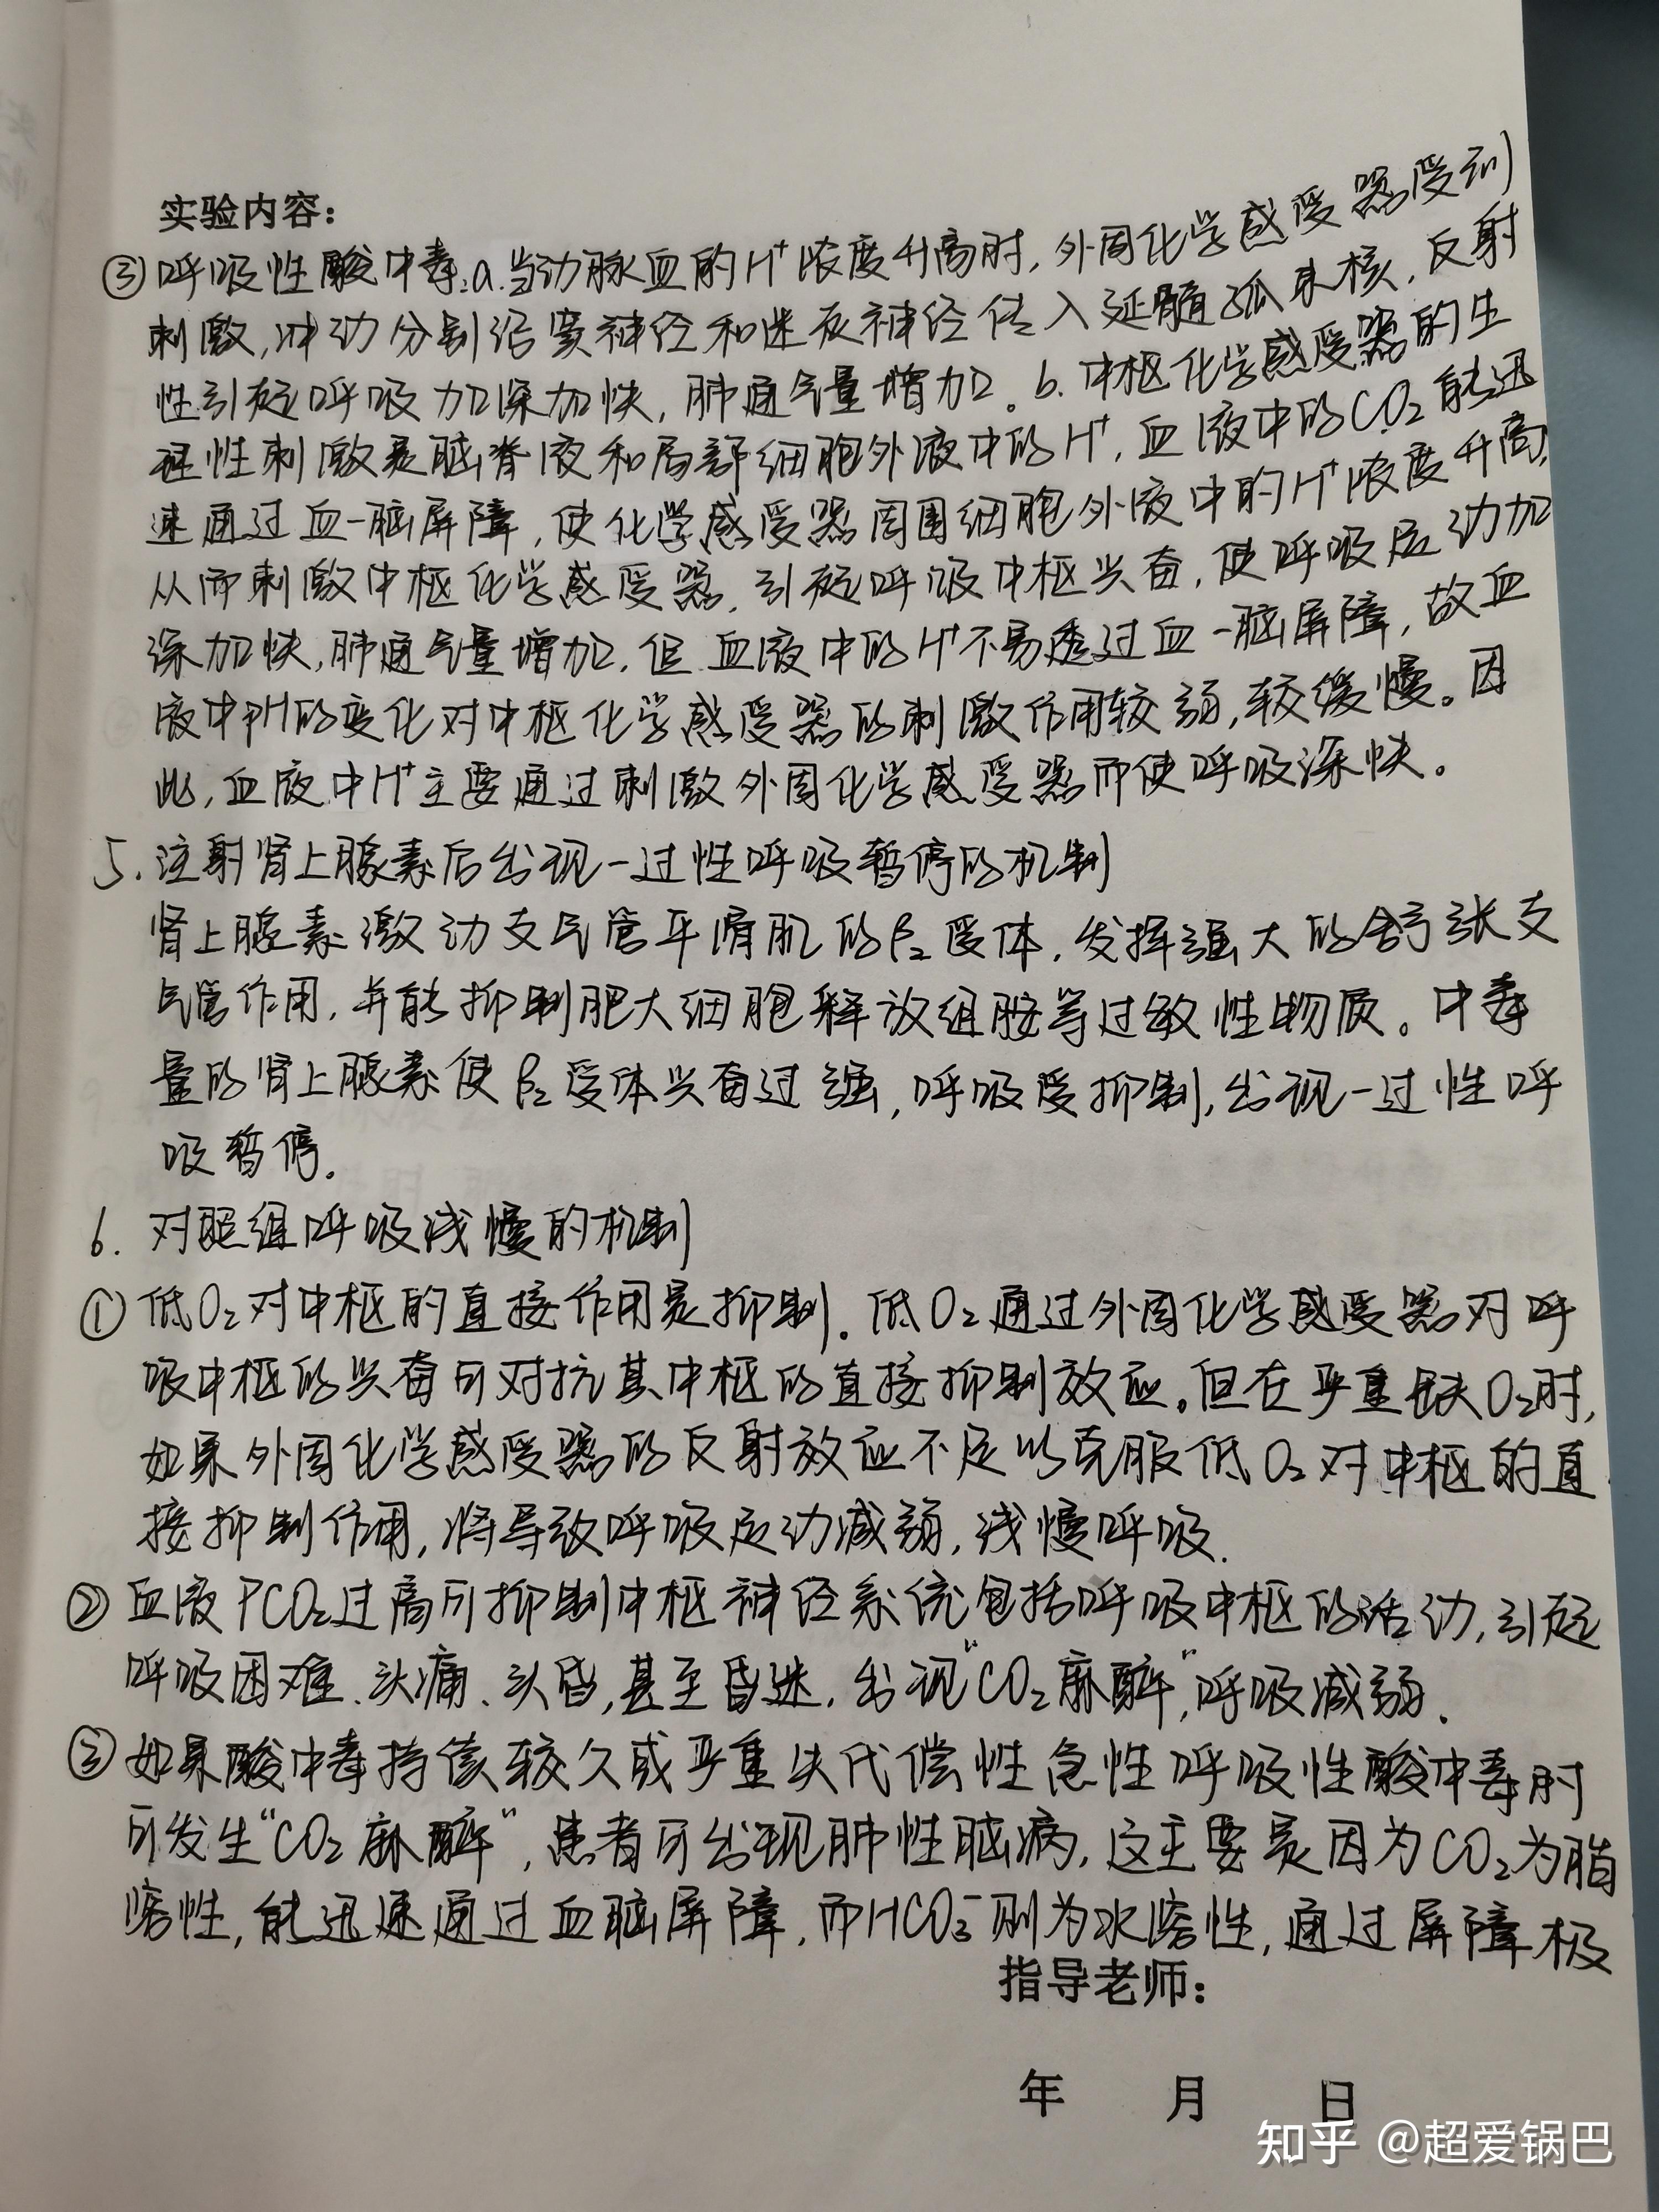 实验内容:
③呼吸性酸中毒:a.当动脉血的H⁺浓度升高时,外周化学感受器受到
刺激,冲动分别沿窦神经和迷走神经传入延髓孤束核,反射
性引起呼吸加深加快,肺通气量增加。b.中枢化学感受器的生
理性刺激是脑脊液和局部细胞外液中的H⁺,血液中的CO₂能迅
速通过血-脑屏障,使化学感受器周围细胞外液中的H⁺浓度升高,
从而刺激中枢化学感受器,引起呼吸中枢兴奋,使呼吸运动加
深加快,肺通气量增加,但血液中的H⁺不易透过血-脑屏障,故血
液中pH的变化对中枢化学感受器的刺激作用较弱,较缓慢。因
此,血液中H⁺主要通过刺激外周化学感受器而使呼吸深快。
5.注射肾上腺素后出现一过性呼吸暂停的机制
肾上腺素激动支气管平滑肌的β₂受体,发挥强大的舒张支
气管作用,并能抑制肥大细胞释放组胺等过敏性物质。中毒
量的肾上腺素使β₂受体兴奋过强,呼吸受抑制,出现一过性呼
吸暂停.
6.对照组呼吸浅慢的机制
①低O₂对中枢的直接作用是抑制.低O₂通过外周化学感受器对呼
吸中枢的兴奋可对抗其中枢的直接抑制效应.但在严重缺O₂时,
如果外周化学感受器的反射效应不足以克服低O₂对中枢的直
接抑制作用,将导致呼吸运动减弱,浅慢呼吸.
②血液PCO₂过高可抑制中枢神经系统包括呼吸中枢的活动,引起
呼吸困难、头痛、头昏,甚至昏迷,出现"CO₂麻醉",呼吸减弱.
③如果酸中毒持续较久或严重失代偿性急性呼吸性酸中毒时
可发生"CO₂麻醉",患者可出现肺性脑病,这主要是因为CO₂为脂
溶性,能迅速通过血脑屏障,而HCO₃⁻则为水溶性,通过屏障极
指导老师:
年 月 日
知乎 @超爱锅巴